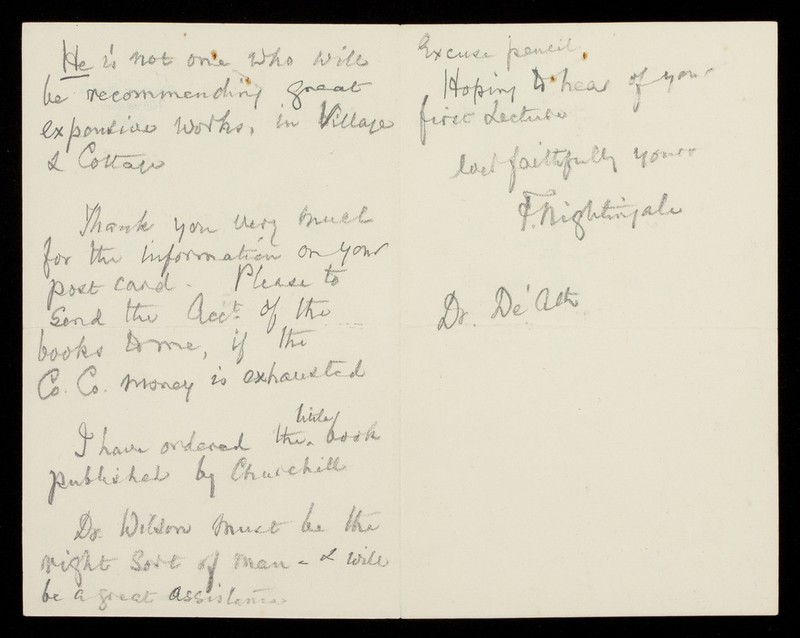 He is not one who will
be recommending great
expensive works, in Village
& Cottage
Thank you very much
for the information on your
post card. Please to
send the Acct. of the
books to me, if the
Co. Co. money is exhausted
I have ordered the little book
published by Churchill
Dr. Wilson must be the
right sort of man - & will
be a great assistance
Excuse pencil.
Hoping to hear of your
first Lecture
faithfully yours
F. Nightingale
Dr. De'Ath